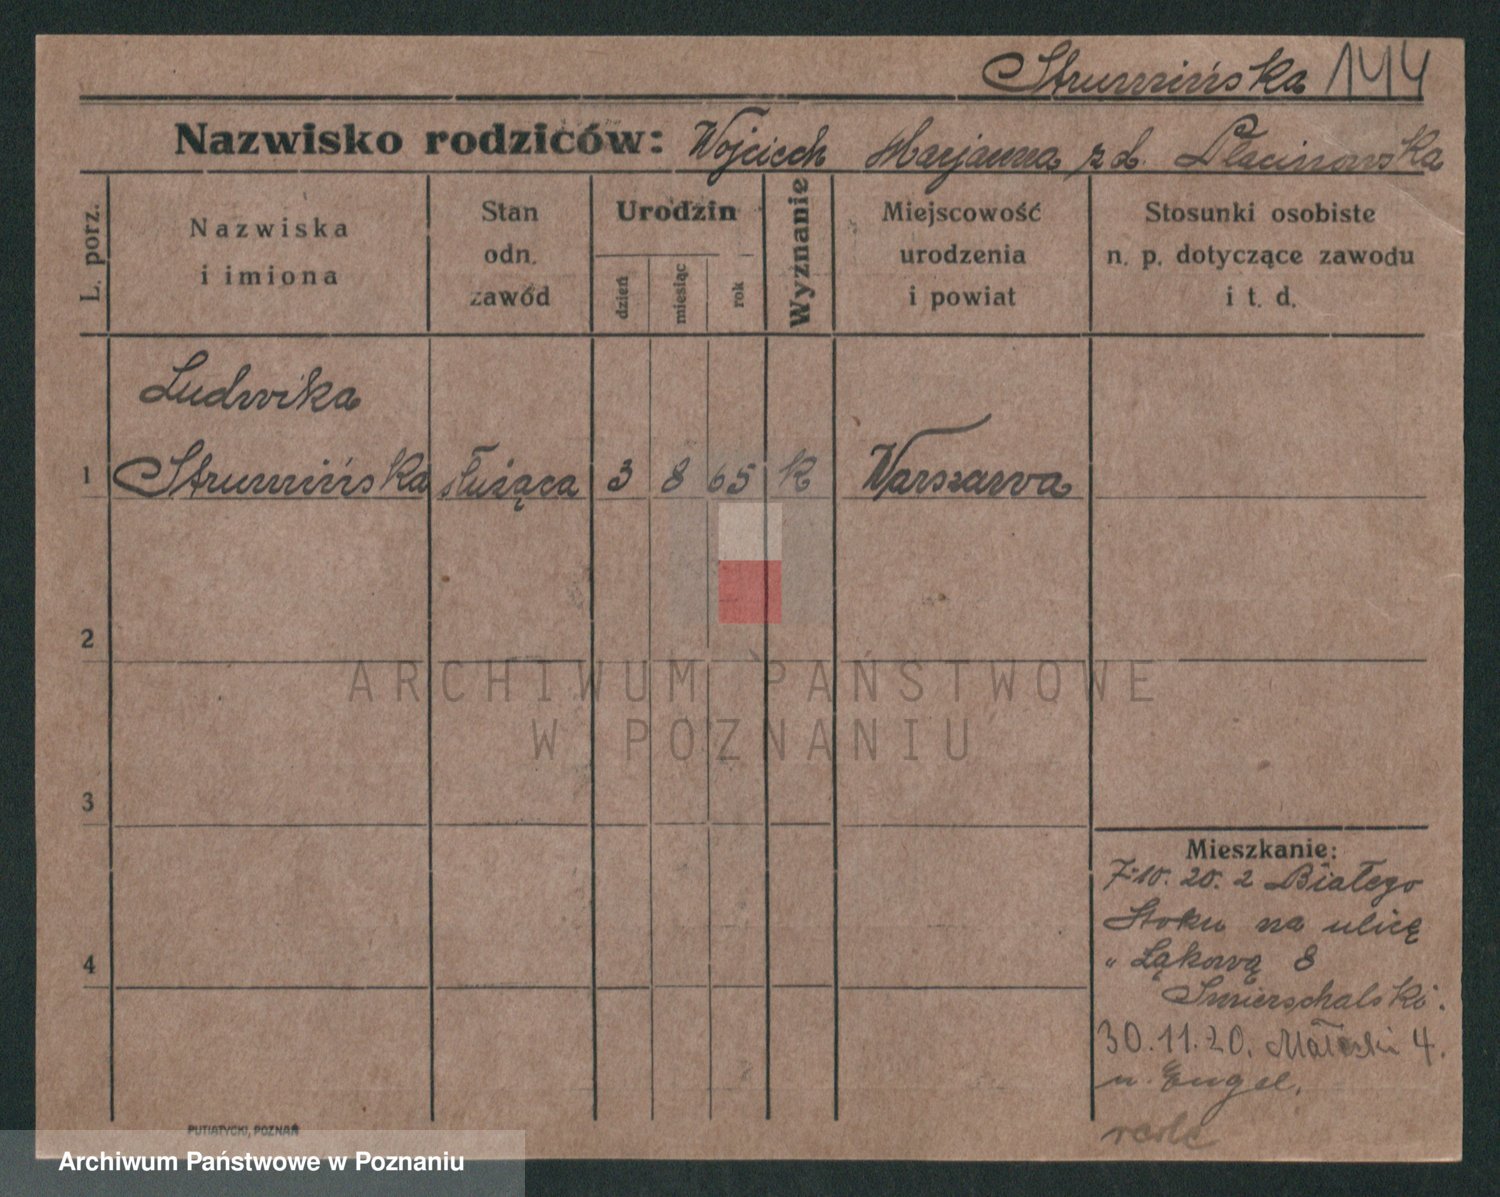 Strumińska 144
Nazwisko rodziców: Wojciech Marjanna z d.
L. porz.
Nazwiska
i imiona
Stan
odn.
zawód
Urodzin
dzień
miesiąc
rok
Wyznanie
Miejscowość
urodzenia
i powiat
Stosunki osobiste
n. p. dotyczące zawodu
i t. d.
Ludwika
1 Strumińska służąca 3 8 65 k Warszawa
2
ARCHIWUM PAŃSTWOWE
W POZNANIU
3
Mieszkanie:
7.10.20. z Białego
Stoku na ulicę
4
" Łąkową 8
Smierschalski.
30.11.20. 4.
u. Engel.
PUTIATYCKI, POZNAŃ
Archiwum Państwowe w Poznaniu